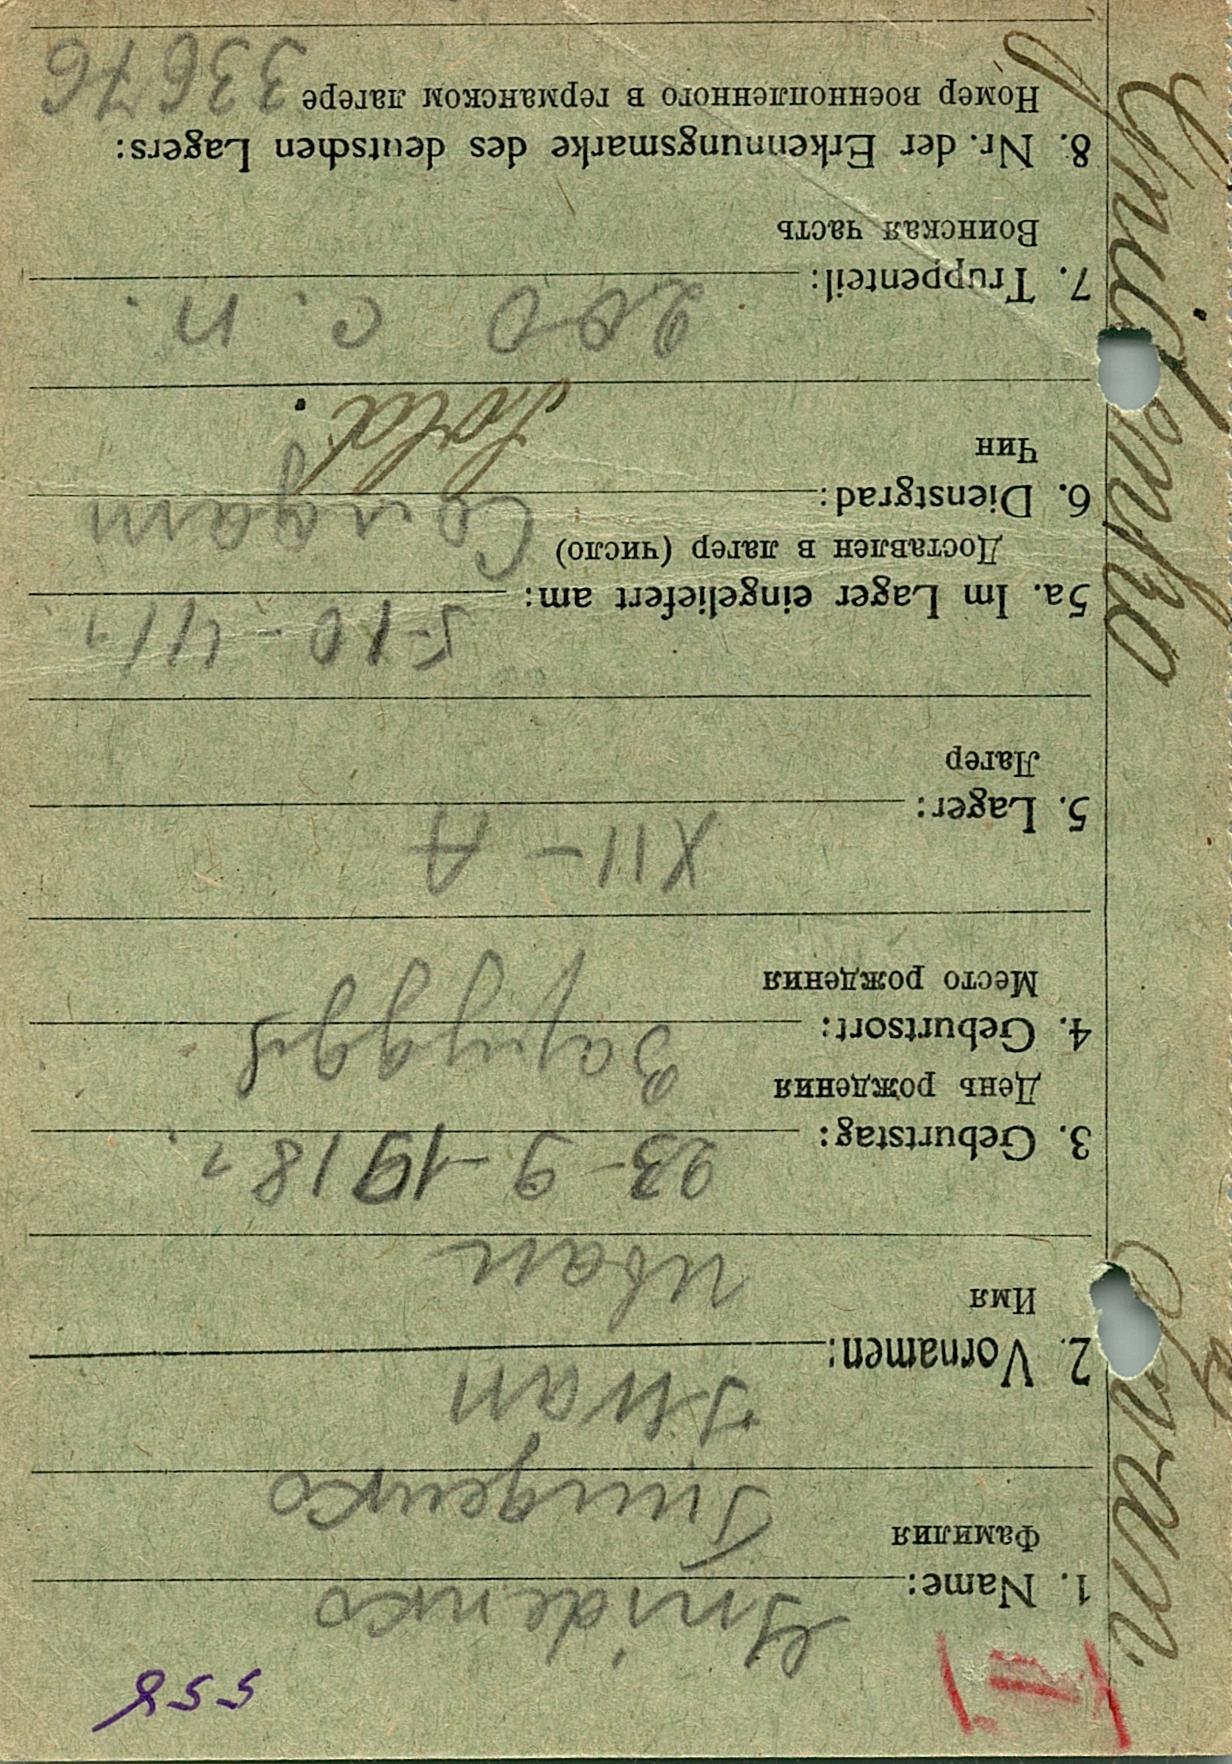 558
1. Name: Gnidenko
Фамилия Гниденко
2. Vornamen: Iwan
Имя Иван
3. Geburtstag: 23-9-1918 г.
День рождения
4. Geburtsort: Заруддя
Место рождения
5. Lager: XII-A
Лагер
5a. Im Lager eingeliefert am: 5-10-41 г
Доставлен в лагер (число)
6. Dienstgrad: Солдат
Чин Sold.
7. Truppenteil: с. п.
Воинская часть
8. Nr. der Erkennungsmarke des deutschen Lagers:
Номер военнопленного в германском лагере 33676
Gnidenko Iwan